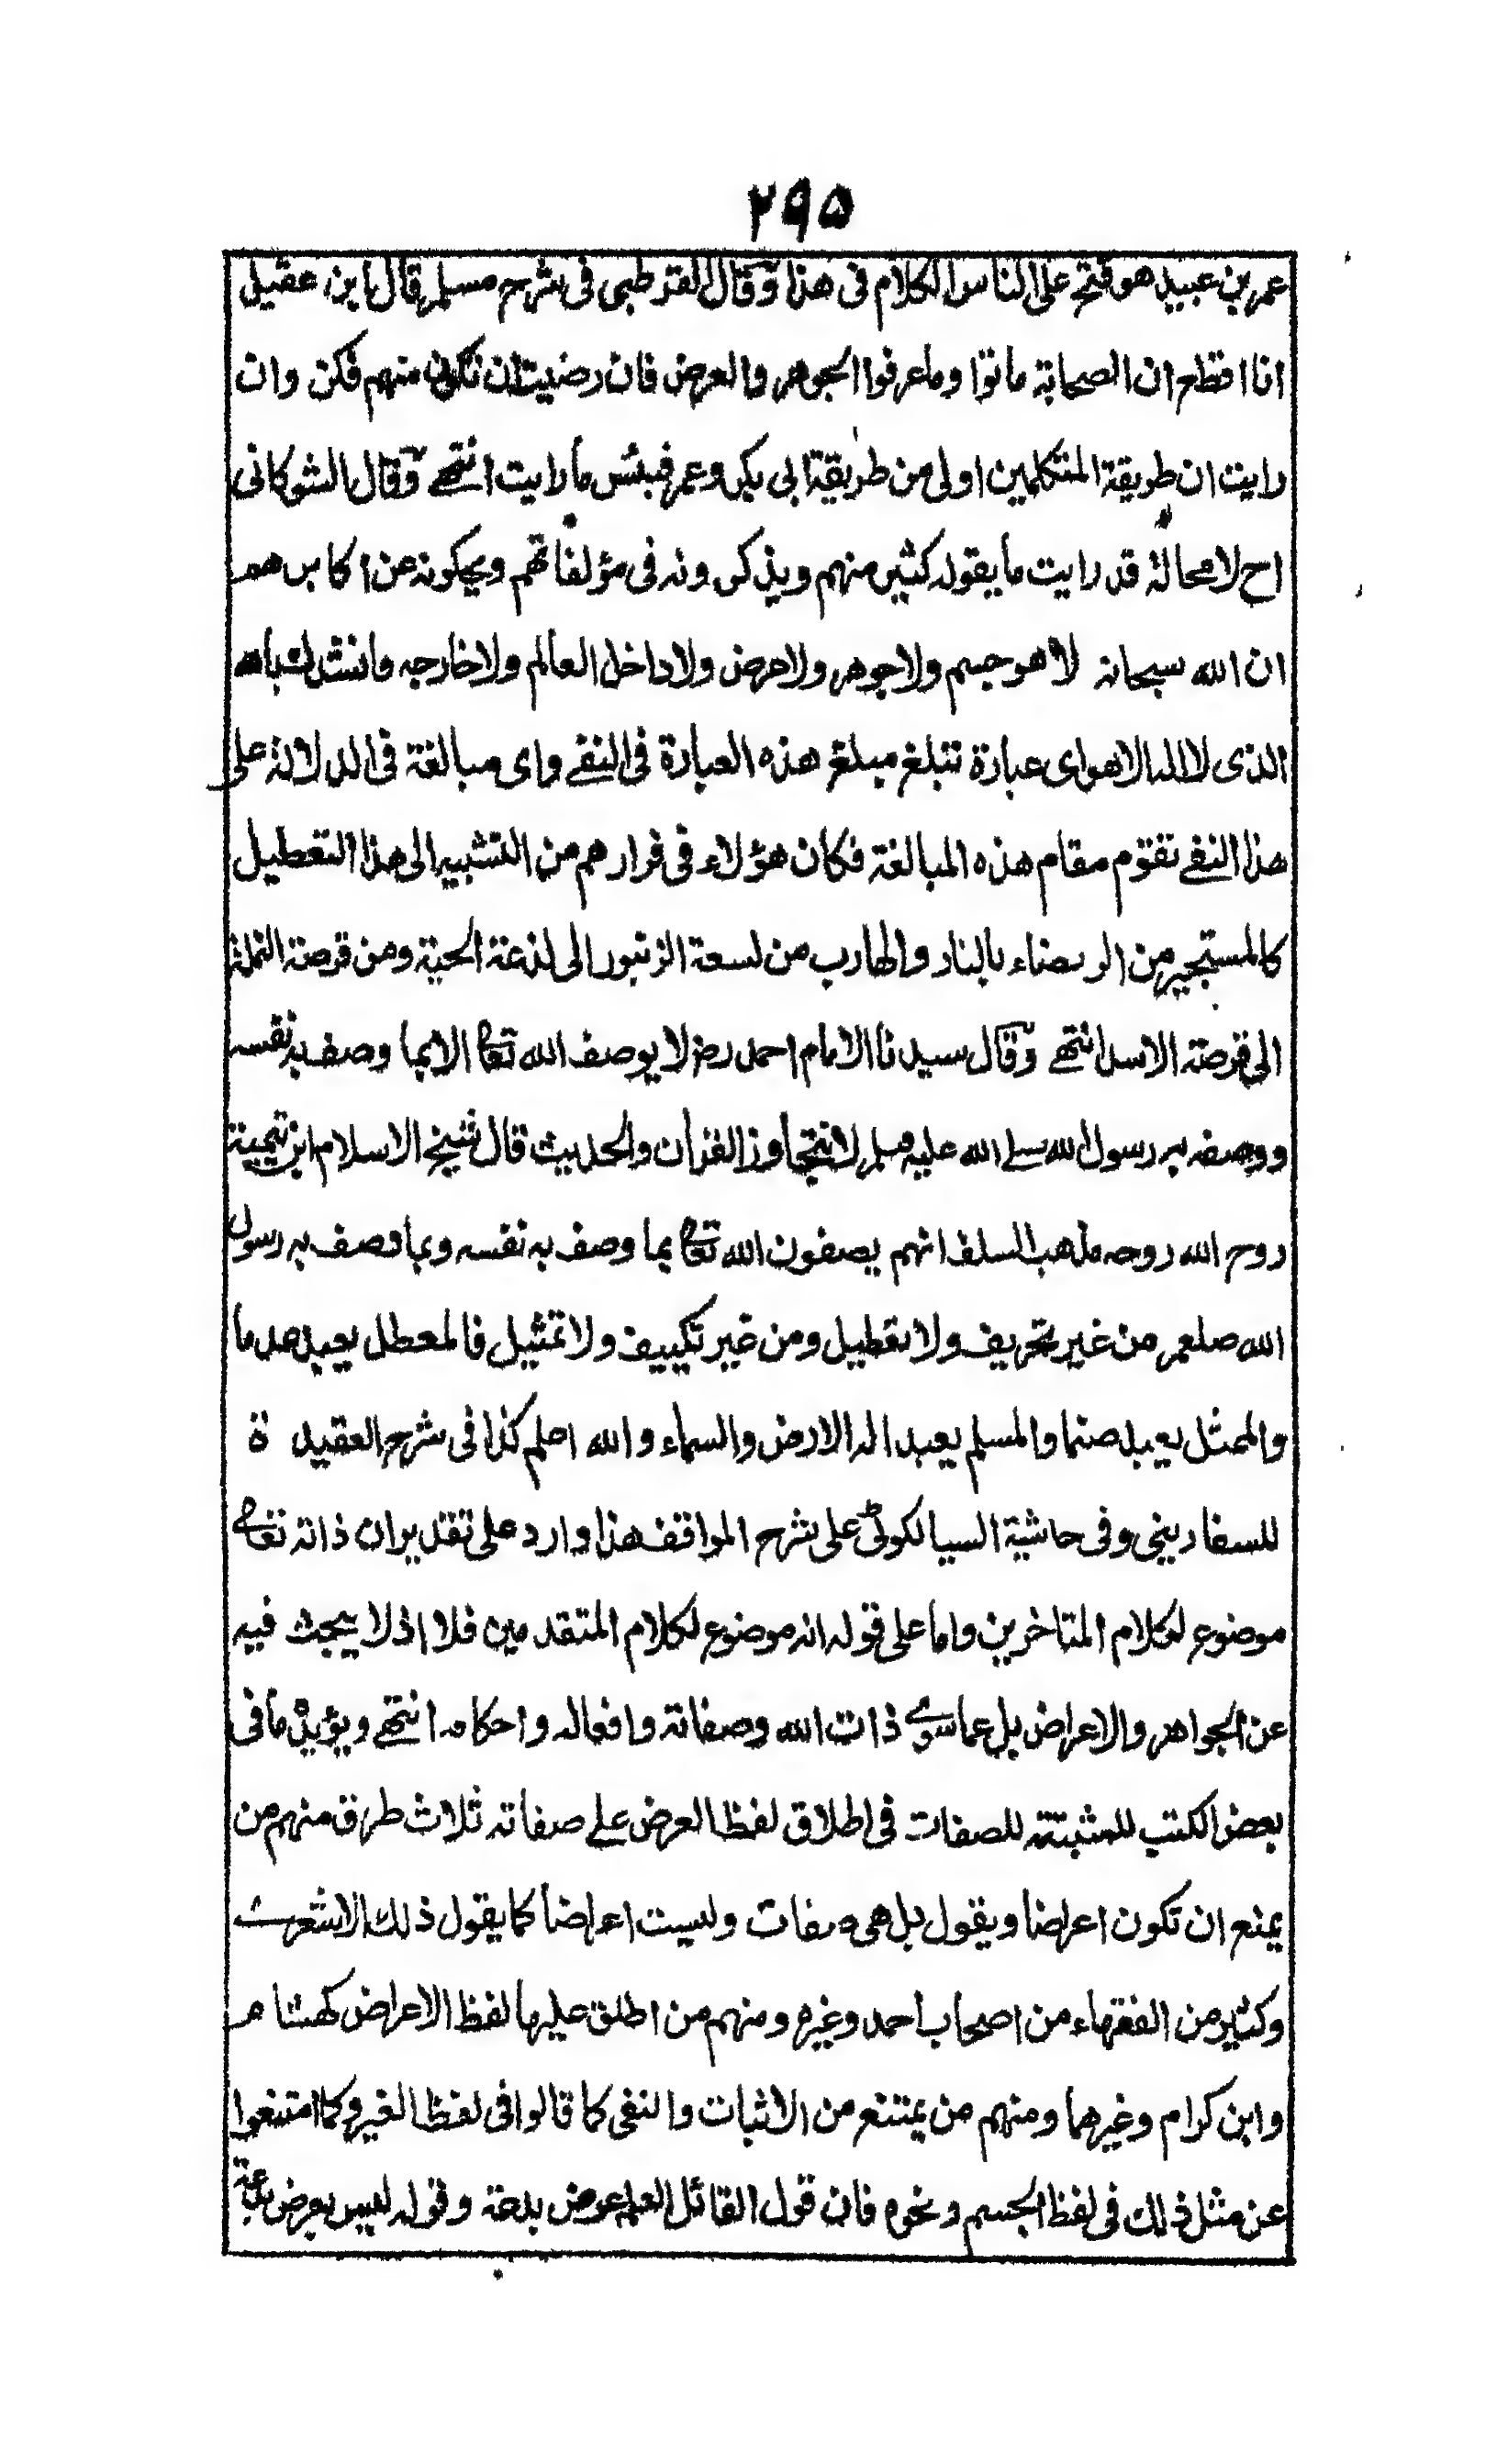 ٢٩٥
عمر بن عبيد هو فتح على الناس الكلام فى هذا وقال القرطبى فى شرح مسلم قال ابن عقيل
انا اقطع ان الصحابة ماتوا وما عرفوا الجوهر والعرض فان رضيت ان تكون منهم فكن وان
رايت ان طريقة المتكلمين اولى من طريقة ابى بكر وعمر فبئس ما رايت انتهى وقال الشوكانى
اح لا محالة قد رايت ما يقوله كثير منهم ويذكرونه فى مؤلفاتهم ويحكونه عن اكابرهم
ان الله سبحانه لا هو جسم ولا جوهر ولا عرض ولا داخل العالم ولا خارجه فانشدك بالله
الذى لا اله الا هو اى عبارة تبلغ مبلغ هذه العبارة فى النفى واى مبالغة فى الدلالة على
هذا النفى تقوم مقام هذه المبالغة فكان هؤلاء فى فرارهم من التشبيه الى هذا التعطيل
كالمستجير من الرمضاء بالنار والهارب من لسعة الزنبور الى لذعة الحية ومن قرصة النملة
الى قرصة الاسد انتهى وقال سيدنا الامام احمد رض لا يوصف الله تعالى الا بما وصف به نفسه
ووصفه به رسول الله صلى الله عليه وسلم لا نتجاوز القرأن والحديث قال شيخ الاسلام ابن تيمية
روح الله روحه مذهب السلف انهم يصفون الله تعالى بما وصف به نفسه وبما وصف به رسول
الله صلعم من غير تحريف ولا تعطيل ومن غير تكييف ولا تمثيل فالمعطل يعبد عدما
والممثل يعبد صنما والمسلم يعبد اله الارض والسماء والله اعلم كذا فى شرح العقيدة
للسفارينى وفى حاشية السيالكوٹى على شرح المواقف هذا وارد على تقدير ان ذاته تعالى
موضوع لكلام المتاخرين واما على قوله انه موضوع لكلام المتقدمين فلا اذ لا يبحث فيه
عن الجواهر والاعراض بل عما سوى ذات الله وصفاته وافعاله واحكامه انتهى ويؤيده ما فى
بعض الكتب للمثبتة للصفات فى اطلاق لفظ العرض على صفاته ثلاث طرق منهم من
يمنع ان تكون اعراضا ويقول بل هى صفات وليست اعراضا كما يقول ذلك الاشعرى
وكثير من الفقهاء من اصحاب احمد وغيره ومنهم من اطلق عليها لفظ الاعراض كهشام
وابن كرام وغيرهما ومنهم من يمتنع من الاثبات والنفى كما قالوا فى لفظ الغير وكما امتنعوا
عن مثل ذلك فى لفظ الجسم ونحوه فان قول القائل العلم عرض بدعة وقوله ليس بعرض بدعة